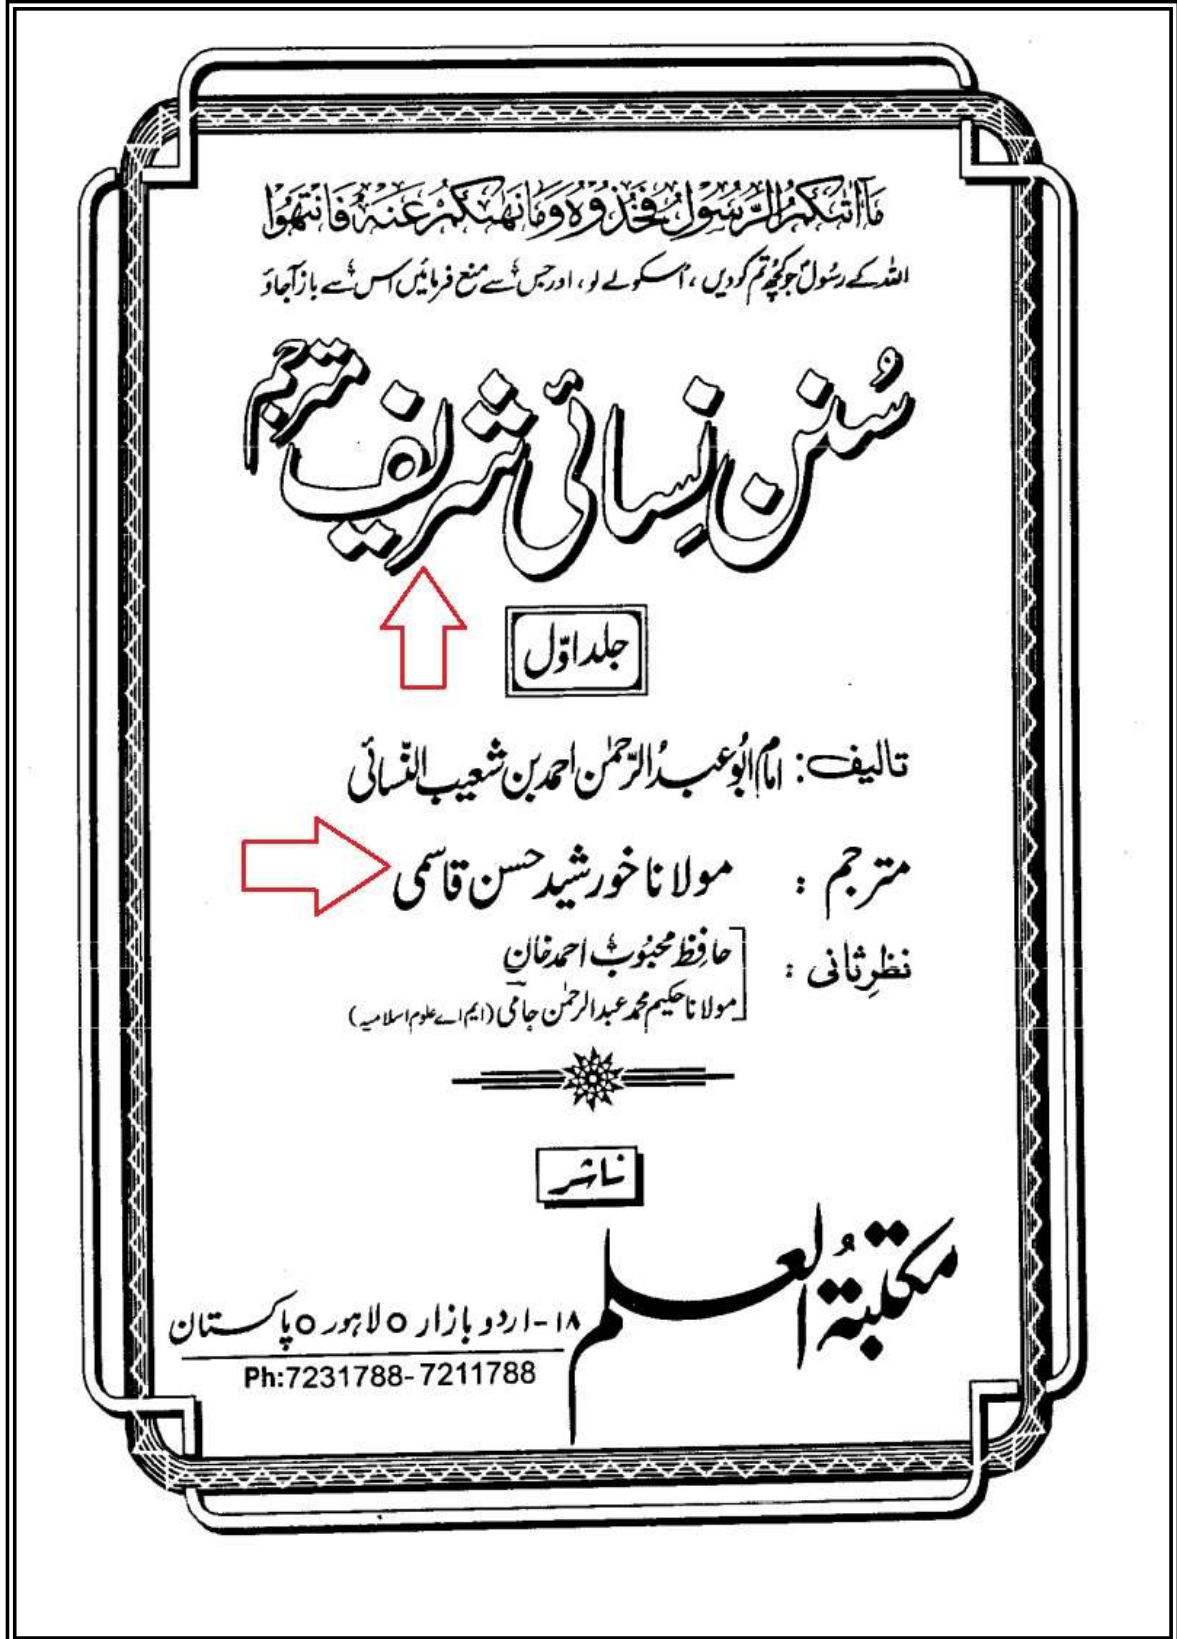 مَآ اٰتٰىكُمُ الرَّسُوْلُ فَخُذُوْهُ وَمَا نَهٰىكُمْ عَنْهُ فَانْتَهُوْا
اللہ کے رسُولؐ جو کچھ تم کو دیں، اُسکو لے لو، اور جس سے منع فرمائیں اس سے باز آجاؤ
سُنن نِسائی شریف مترجم
جلد اوّل
تالیف: امام ابُو عبدُ الرّحمٰن احمد بن شعیب النّسائی
مترجم : مولانا خورشید حسن قاسمی
نظرِ ثانی : حافظ محبُوب احمد خان
مولانا حکیم محمد عبدالرحمٰن جامی (ایم اے علوم اسلامیہ)
ناشر
مکتبۃ العُلم
۱۸-اردو بازار ○ لاہور ○ پاکستان
Ph:7231788-7211788